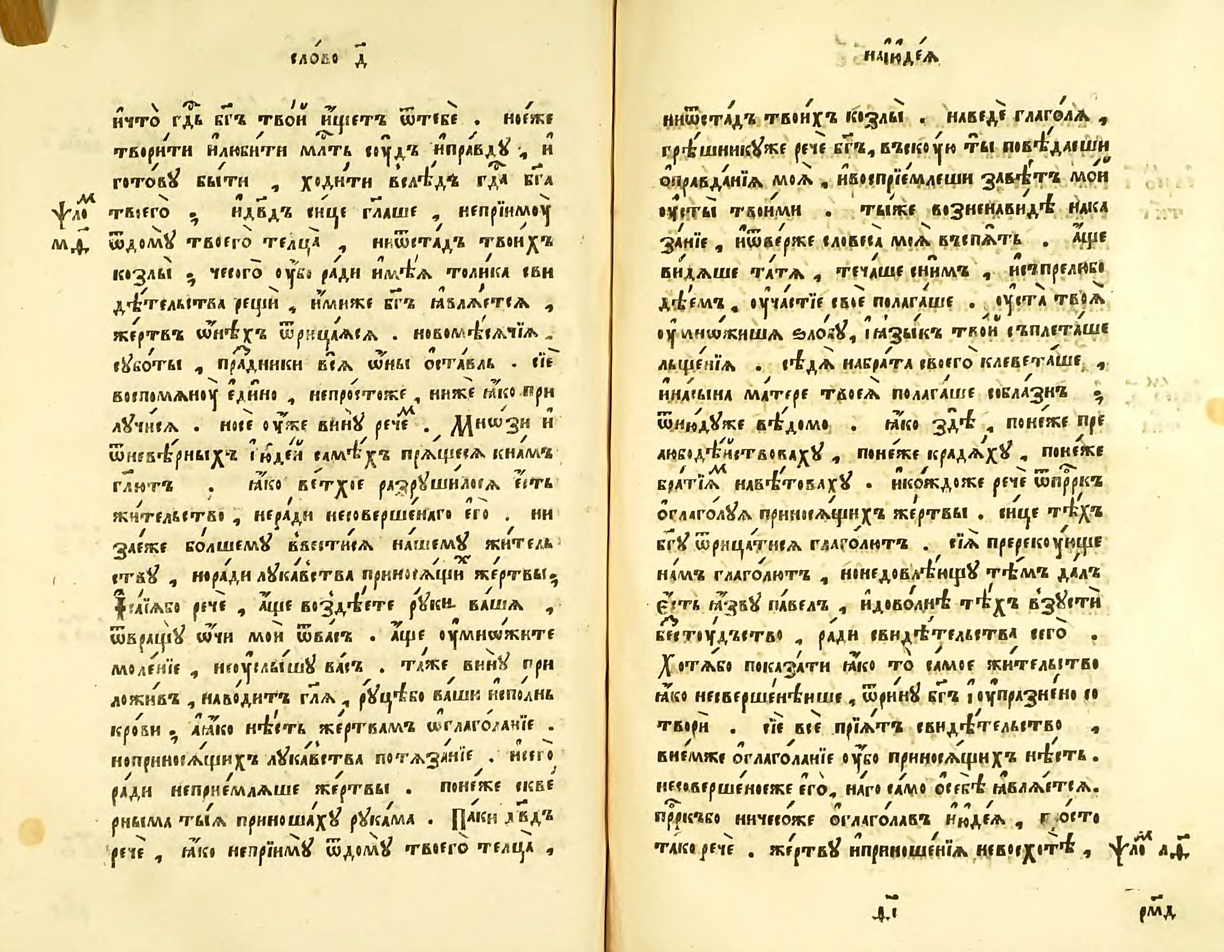 сло́во д҃
и҆что̀ гдⷭ҇ь бг҃ъ тво́й и҆́щетъ ѿтебѐ . но́еже
твори́ти и҆люби́ти млⷭ҇ть сꙋ́дъ и҆пра́вдꙋ , и҆
гото́вꙋ бы́ти , ходи́ти всле́дъ гдⷭ҇а бг҃а
ѱало́ⷨ твоегѡ̀ ; и҆дв҃дъ си́це гл҃аше , непрїимꙋ̀
м҃д ѿдо́мꙋ твоего̀ телца̀ , ниѿста́дъ твои́хъ
козлы̀ ; чесого̀ ᲂу҆́бо ра́ди и҆мѣ́ѧ толи́ка сви
дѣ́тельства рещѝ , и҆́миже бг҃ъ ꙗ҆влѧ́етсѧ ,
же́ртвъ ѻ҆нѣ́хъ ѿрица́ѧсѧ . новомⷭ҇ѣсѧчїѧ .
сꙋбо́ты , пра́здники всѧ̀ ѡ҆́ны ѡ҆ста́вль . сїѐ
воспомѧнꙋ̀ є҆ди́но , непро́стоже , нижѐ ꙗ҆́ко при
лꙋчи́сѧ . носѐ ᲂу҆́же винꙋ̀ рече́ⷨ . Мно́зи и҆
ѿневѣ́рныхъ і҆ꙋде́й самѣ́хъ прѧ́щесѧ кна́мъ
гл҃ютъ . ꙗ҆́ко ве́тхїе разрꙋши́лосѧ є҆́сть
жи́тельство , неради несоверше́наго є҆го̀ . ни
зае́же бо́лшемꙋ ввести́сѧ на́шемꙋ жи́тель
ствꙋ , нора́ди лꙋка́вства приносѧ́щиⷯ же́ртвы;
І҆са́їѧбо речѐ , а҆́ще воздѣ́ете рꙋ́ки ва́шѧ ,
ѿвращꙋ̀ ѻ҆́чи моѝ ѿва́съ . а҆́ще ᲂу҆мно́жите
моле́нїе , неꙋслы́шꙋ ва́съ . та́же винꙋ̀ при
ложи́въ , наво́дитъ гл҃ѧ , рꙋ́цѣбо ва́ши и҆спо́лнь
кро́ви ; а҆ꙗ҆́ко нѣ́сть же́ртвамъ ѡ҆глаго́ланїе .
ноприносѧ́щихъ лꙋка́вства потѧза́нїе . и҆сего̀
ра́ди непрїе́млѧше же́ртвы . поне́же скве́
рныма ты́ѧ приноша́хꙋ рꙋка́ма . Па́ки дв҃дъ
речѐ , ꙗ҆́ко непрїимꙋ̀ ѿдо́мꙋ твоего̀ телца̀ ,
наі҆ꙋде́ѧ
ниѿста́дъ твои́хъ козлы̀ . наведѐ глаго́лѧ ,
грѣ́шникꙋже речѐ бг҃ъ , въскꙋ́ю ты̀ повѣ́даеши
ѡ҆правда́нїѧ моѧ̀ , и҆воспрїе́млеши завѣ́тъ мо́й
ᲂу҆сты̀ твои́ми . ты́же возненави́дѣ нака
за́нїе , и҆ѿве́рже словеса̀ моѧ̀ въспѧ́ть . а҆́ще
ви́дѧше та́тѧ , теча́ше сни́мъ , и҆спрелюбо
дѣ́емъ , ᲂу҆ча́стїе своѐ полага́ше . ᲂу҆ста̀ твоѧ̀
ᲂу҆мно́жишѧ ѕло́бꙋ , і҆ꙗ҆зы́къ тво́й съплета́ше
льще́нїѧ . сѣдѧ̀ набра́та своего̀ клевета́ше ,
и҆насы́на ма́тере твоеѧ̀ полага́ше собла́знъ ;
ѿню́дꙋже вѣ́домо . ꙗ҆́ко здѣ̀ , поне́же пре
любодѣ́йствовахꙋ , поне́же крадѧ́хꙋ , поне́же
брати́ѧⷨ навѣ́товахꙋ . и҆ко́ждоже речѐ ѿпрⷪ҇ркъ
ѡ҆глаго́лꙋѧ приносѧ́щихъ же́ртвы . си́це тѣ́хъ
бг҃ꙋ ѿрица́тисѧ глаго́лютъ . сїѧ̀ пререкꙋ́юще
на́мъ глаго́лютъ , нонедовлѣ́ющꙋ тѣ́мъ да́лъ
є҆́сть ꙗ҆́звꙋ па́велъ , и҆дово́лнѣ тѣ́хъ взꙋстѝ
бестꙋ́дъство , ра́ди свидѣ́тельства сего̀ .
Хотѧ́бо показа́ти ꙗ҆́ко то̀ само́е жи́тельство
ꙗ҆́ко несверше́нѣише , ѿри́нꙋ бг҃ъ і҆ꙋпразнено̀ со
творѝ . сїѐ всѐ прїѧ́тъ свидѣ́тельство ,
вне́мже ѡ҆глаго́ланїе ᲂу҆́бо приносѧ́щихъ нѣ́сть .
несоверше́ноеже є҆го̀ , на́го само̀ ѡ҆себѣ̀ ꙗ҆влѧ́етсѧ .
прⷪ҇ркъбо ничесо́же ѡ҆глаго́лавъ і҆ꙋде́ѧ , про́сто
та́ко речѐ . же́ртвꙋ и҆приноше́нїѧ невосхотѣ̀ , ѱало́ⷨ л҃д
д҃і рм҃д